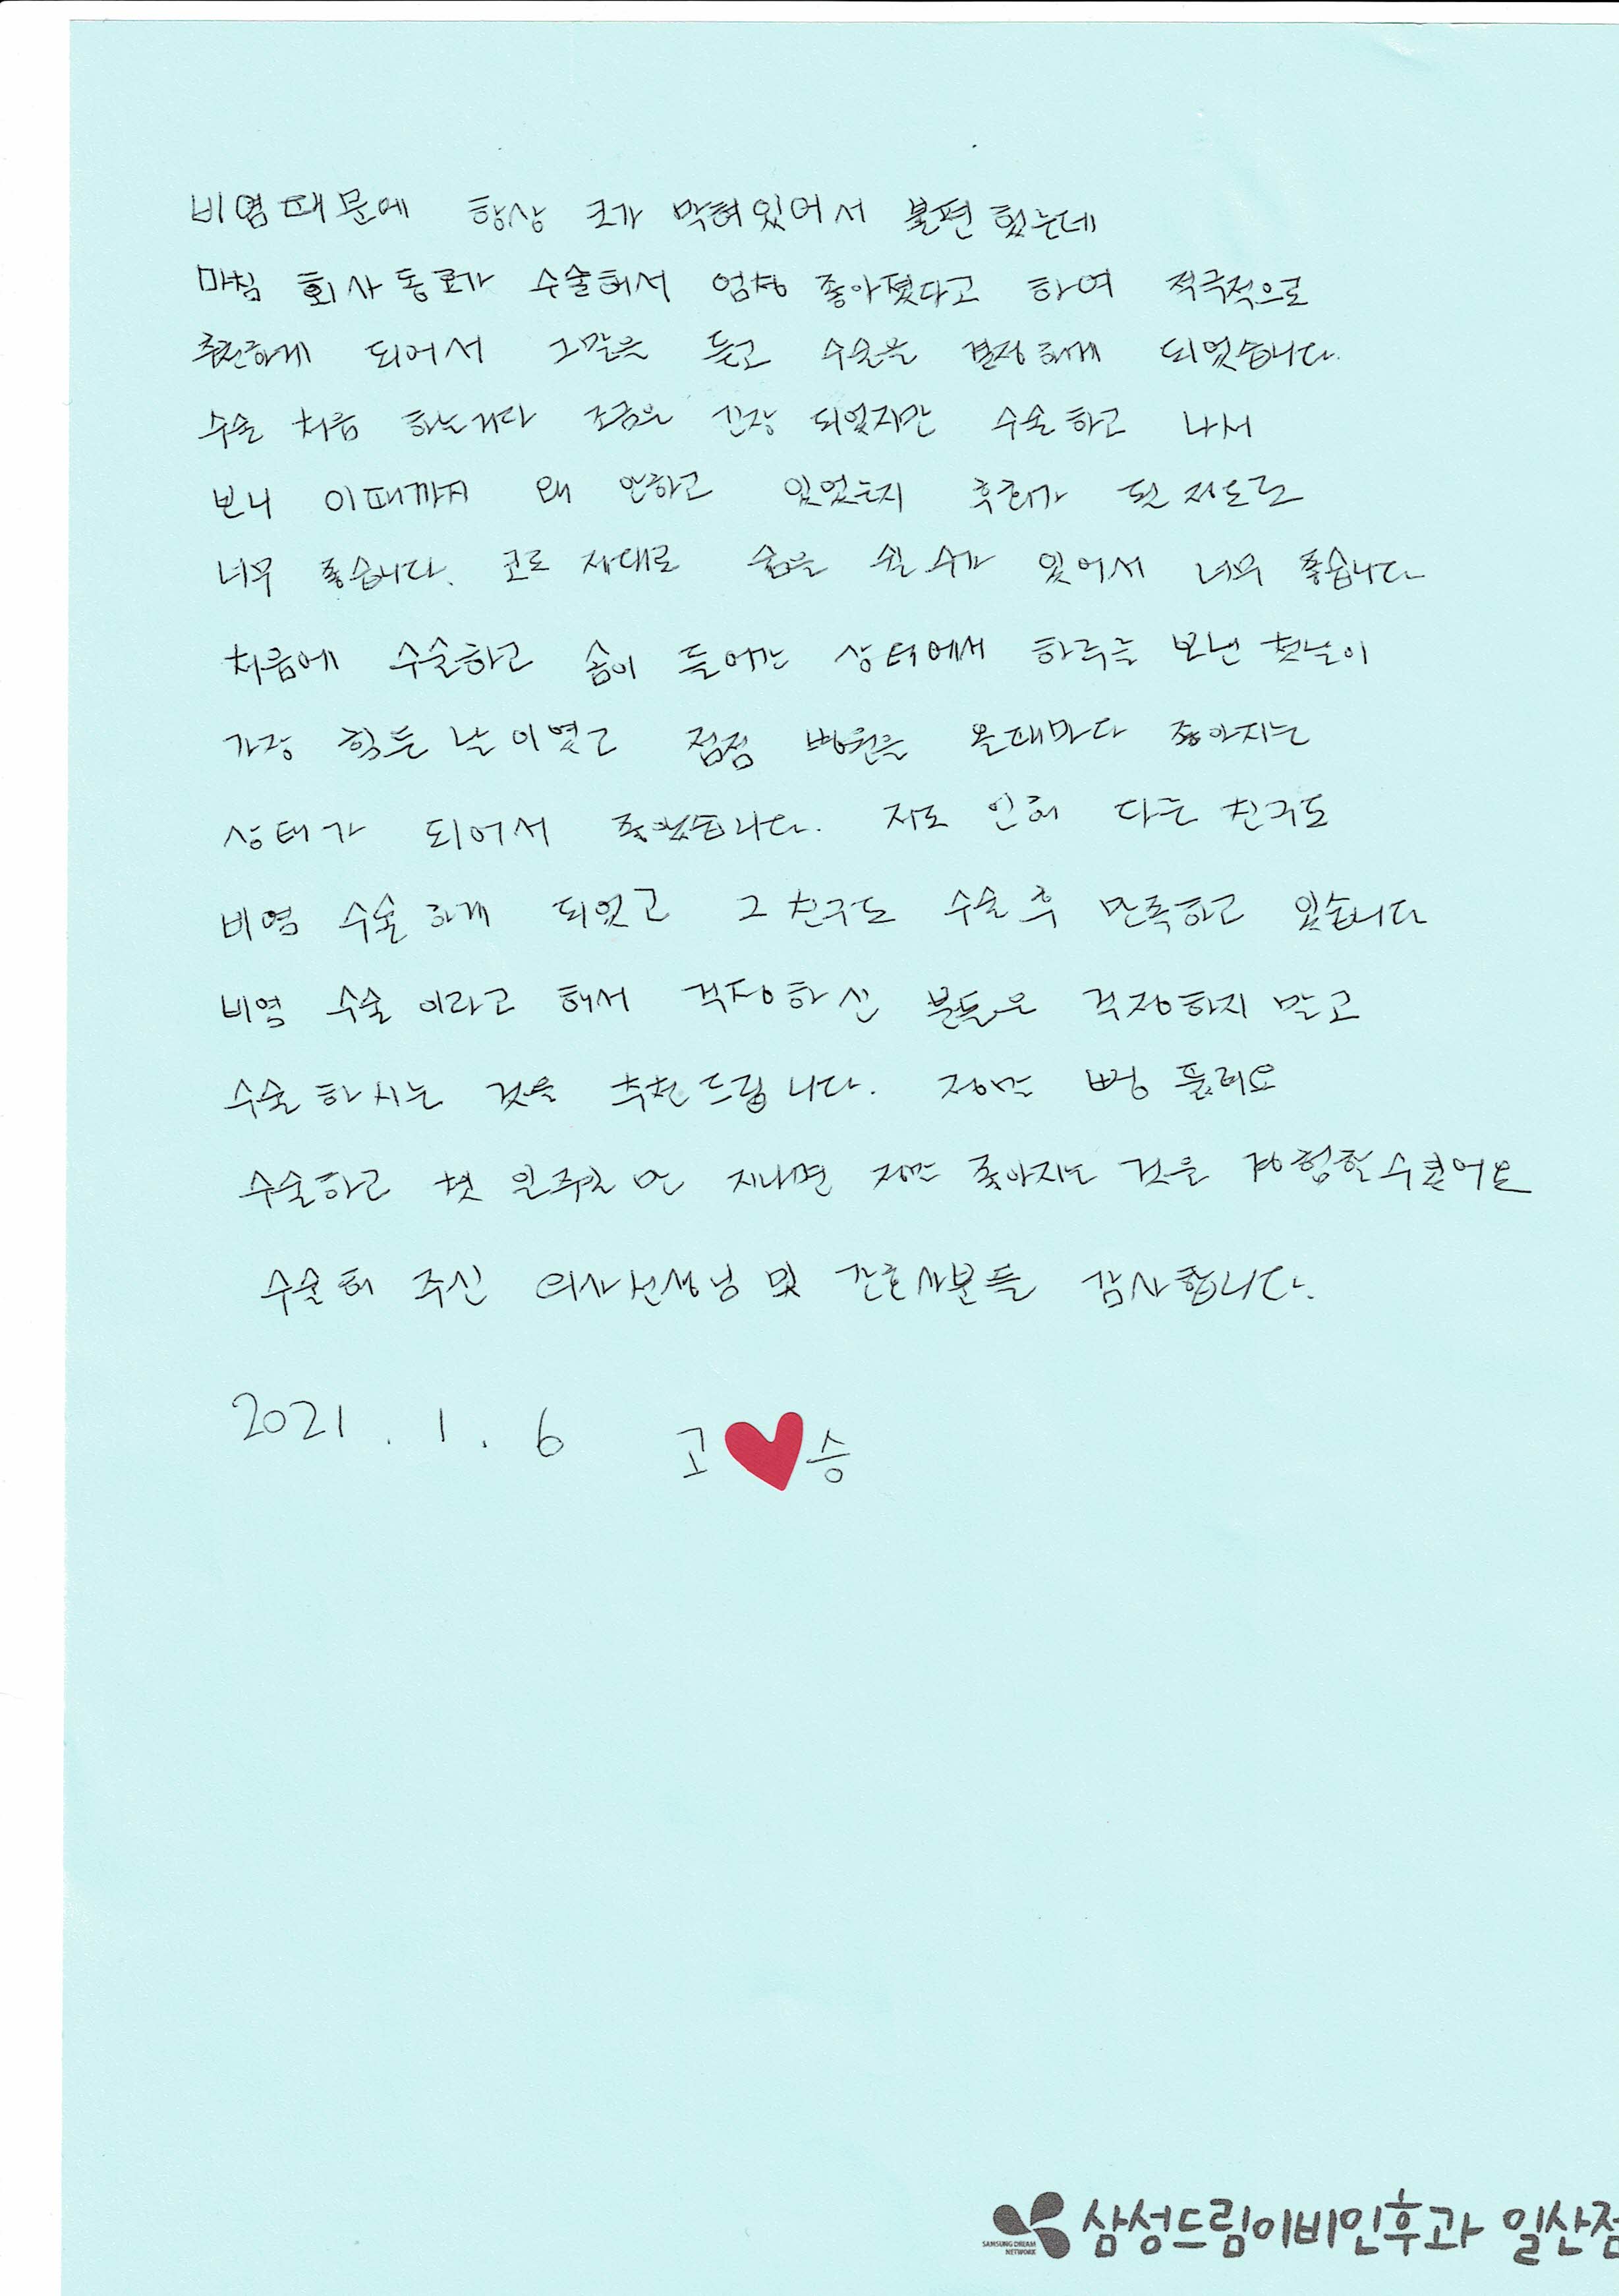 비염때문에 항상 코가 막혀있어서 불편했는데
마침 회사동료가 수술해서 엄청 좋아졌다고 하여 적극적으로
추천하게 되어서 그말을 듣고 수술을 결정하게 되었습니다.
수술 처음 하는거라 조금은 긴장 되었지만 수술하고 나서
보니 이때까지 왜 안하고 있었는지 후회가 될 정도로
너무 좋습니다. 코로 제대로 숨을 쉴 수가 있어서 너무 좋습니다
처음에 수술하고 솜이 들어간 상태에서 하루를 보낸 첫날이
가장 힘든 날이였고 점점 병원을 올때마다 좋아지는
상태가 되어서 좋았습니다. 저로 인해 다른 친구도
비염 수술하게 되었고 그 친구도 수술 후 만족하고 있습니다
비염 수술이라고 해서 걱정하신 분들은 걱정하지 말고
수술하시는 것을 추천드립니다. 정말 뻥 뚫려요
수술하고 첫 일주일만 지나면 정말 좋아지는 것을 경험할수있어요
수술해 주신 의사선생님 및 간호사분들 감사합니다.
2021. 1. 6 고 승
삼성드림이비인후과 일산점
SAMSUNG DREAM
NETWORK